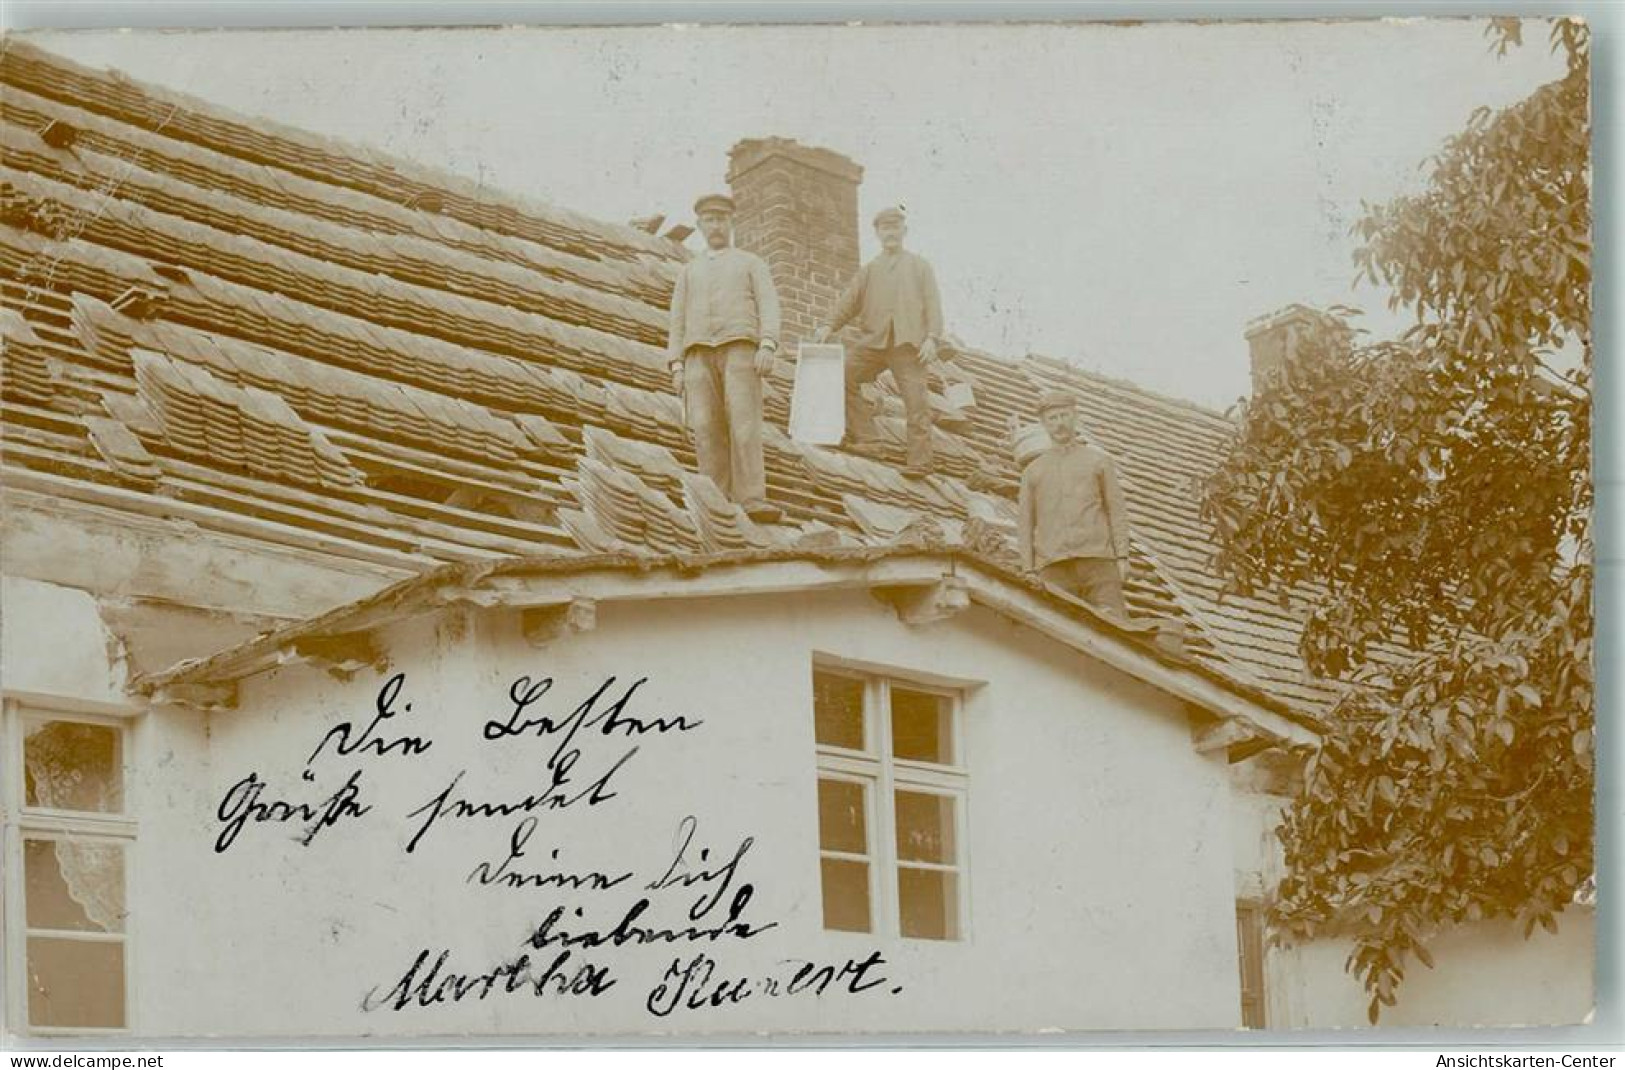 Die Besten
Grüße sendet
Deine Dich
liebende
Martha Kunert.
www.delcampe.net
Ansichtskarten-Center